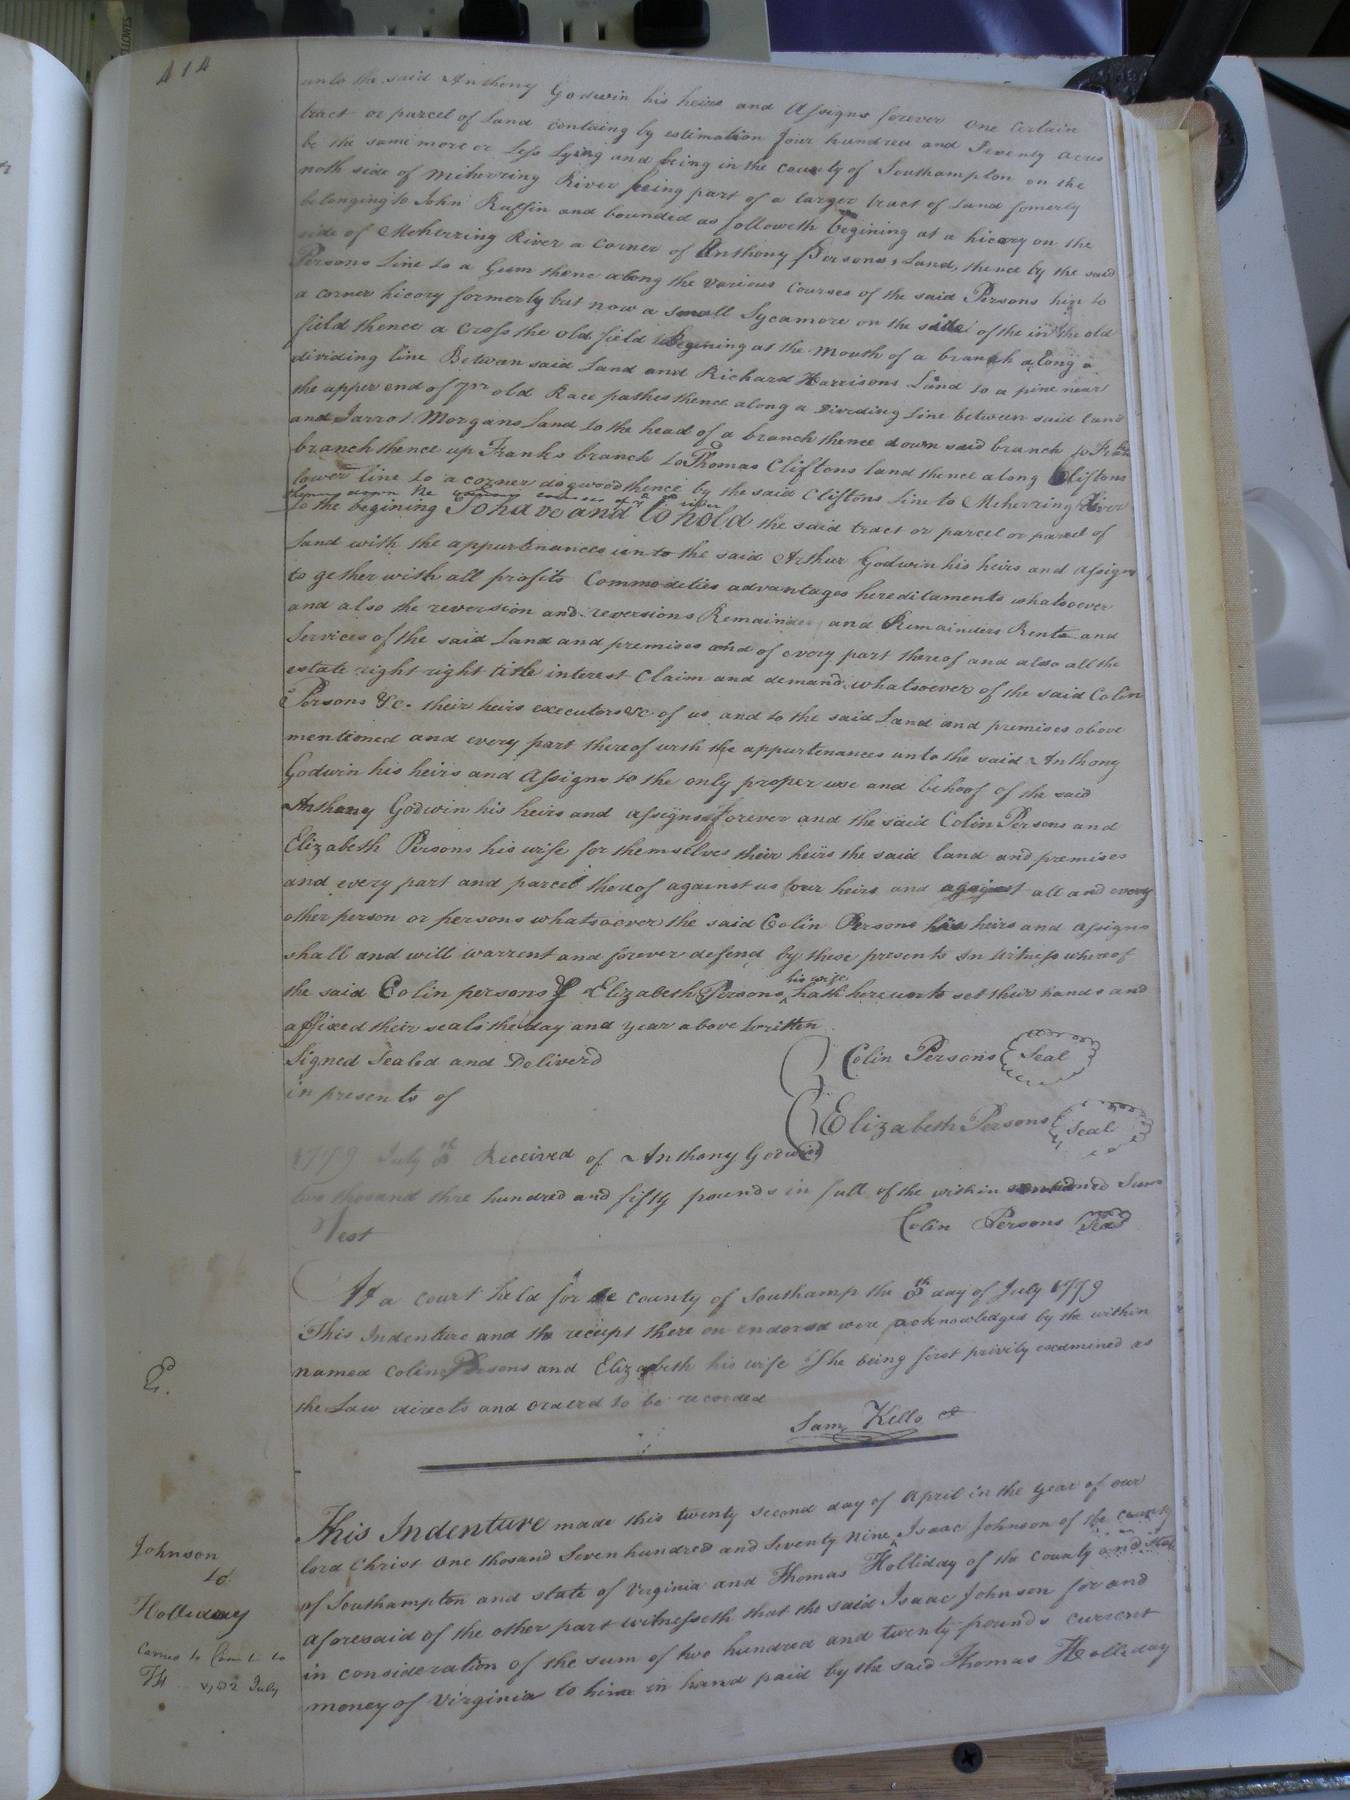 414
unto the said Anthony Godwin his heirs and Assigns forever One Certain
tract or parcel of Land containg by estimation four hundred and Seventy acres
be the same more or Less Lying and being in the county of Southampton on the
noth side of Meherring River being part of a larger tract of Land fomerly
belonging to John Ruffin and bounded as followeth begining at a hicory on the
side of Meherring River a Corner of Anthony Persons Land, thence by the said
Persons Line to a Gum thenc along the various Courses of the said Persons line to
a corner hicory formerly but now a small Sycamore on the side of the old
field thence a Cross the old field Begining at the Mouth of a branch along a
dividing line Betwen said Land and Richard Harrisons Land to a pine near
the apper end of old Race pathes thence along a Dividing Line between said land
and Jarrot Morgans Land to the head of a branch thence down said branch to Franks
branch thence up Franks branch to Thomas Cliftons land thence along Cliftons
lower line to a corner dogwood thence by the said Cliftons Line to Meherring River
thence down the various courses of sd river
to the begining To have and to hold the said tract or parcel or parcel of
Land with the appurtenances unto the said Arthur Godwin his heirs and assigns
to gether with all profits Commodities advantages hereditaments whatsoever
and also the reversion and reversions Remainder and Remainders Rents and
Services of the said Land and premises and of every part thereof and also all the
estate right right title interest Claim and demand whatsoever of the said Colin
Persons &c. their heirs executors &c of us and to the said Land and premises above
mentioned and every part thereof with the appurtenances unto the said Anthony
Godwin his heirs and Assigns to the only proper use and behoof of the said
Anthony Godwin his heirs and assigns forever and the said Colin Persons and
Elizabeth Persons his wife for themselves their heirs the said land and premises
and every part and parcel thereof against us our heirs and against all and every
other person or persons whatsoever the said Colin Persons his heirs and assigns
shall and will warrent and forever defend by these presents In Witness whereof
his wife
the said Colin persons & Elizabeth Persons hath hereunto set their hands and
affixed their seals the day and year above written
Signed Sealed and Deliverd
in presents of
Colin Persons Seal
Elizabeth Persons Seal
1779 July 8th Received of Anthony Godwin
two thosand thre hundred and fifty pounds in full of the within mentioned Sum
Test
Colin Persons Seal
At a court held for the county of Southamp the 8th day of July 1779
This Indenture and the receipt there on endorsed were acknowledged by the within
named Colin Persons and Elizabeth his wife She being first privily examined as
the Law directs and ordered to be recorded
Sam Kello
E.
Johnson
to
Holliday
This Indenture made this twenty second day of April in the year of our
lord Christ One thosand Seven hundred and Seventy Nine Isaac Johnson of the county
of Southampton and state of Virginia and Thomas Holliday of the county and State
aforesaid of the other part witnesseth that the said Isaac Johnson for and
in consideration of the sum of two hundred and twenty pounds current
money of Virginia to him in hand paid by the said Thomas Holliday